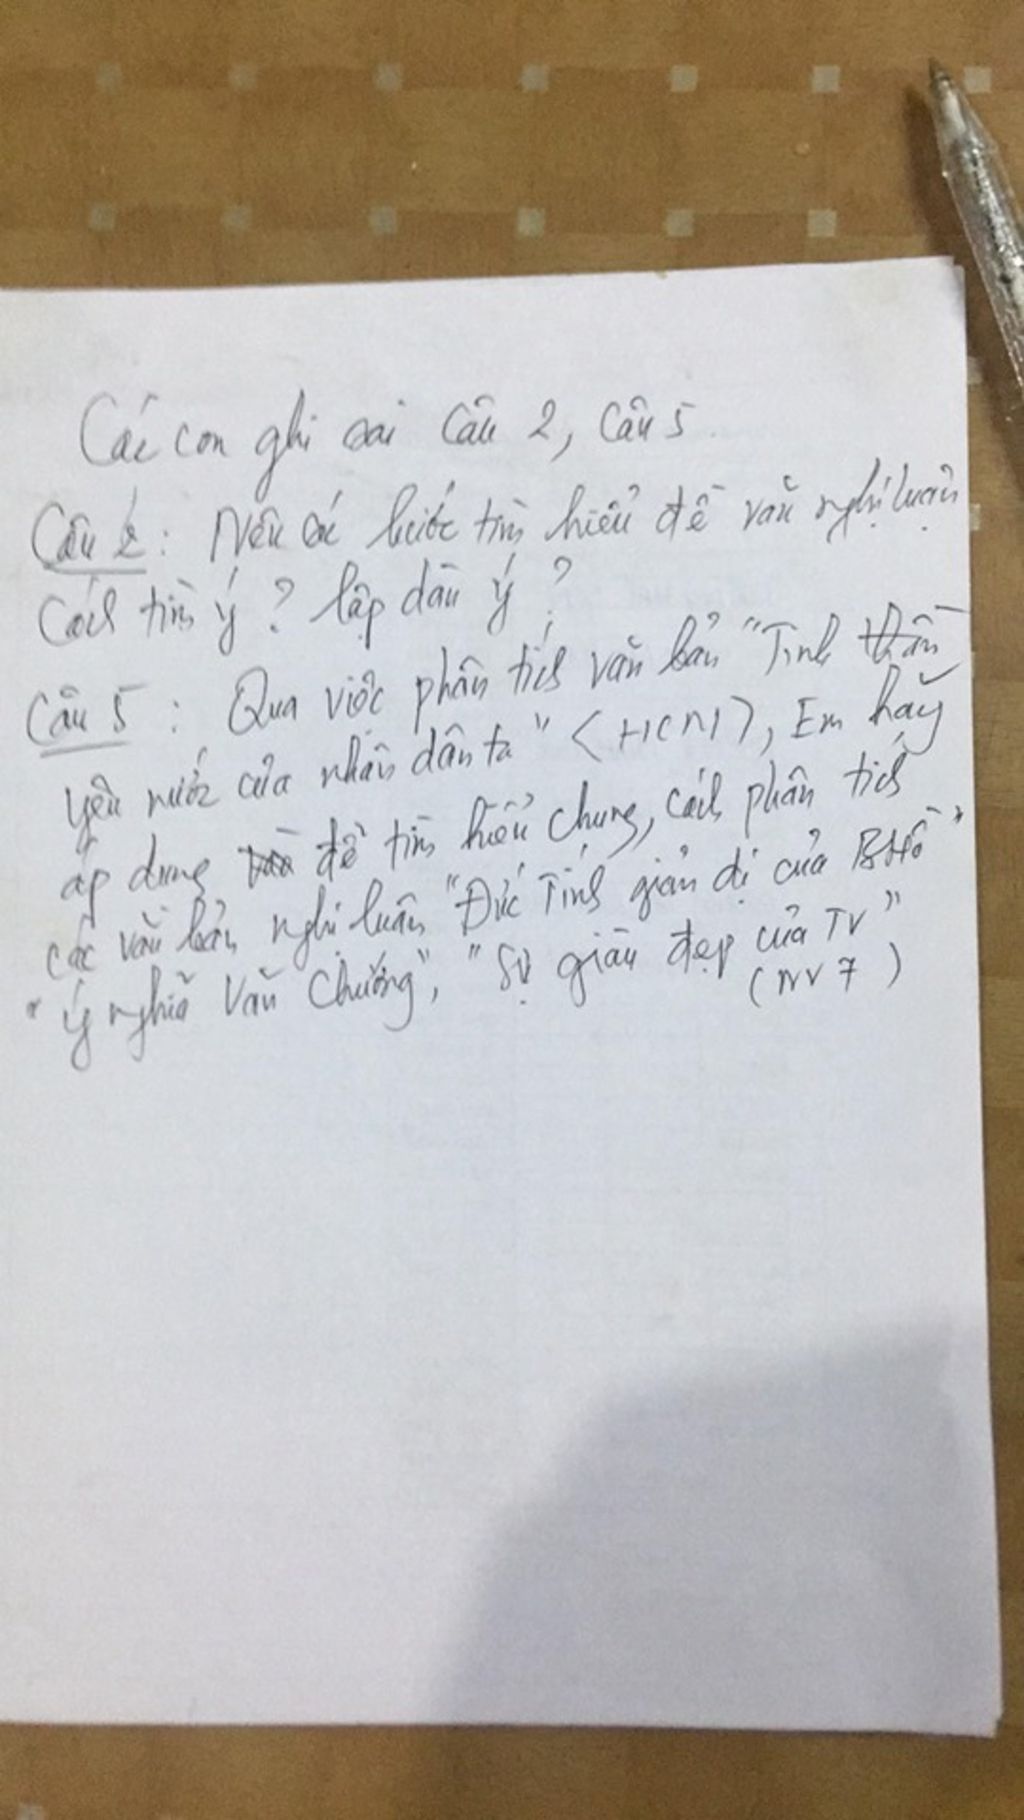 Các con ghi sai Câu 2, Câu 5
Câu 2: Nêu các bước tìm hiểu đề văn nghị luận
Cách tìm ý? lập dàn ý?
Câu 5: Qua việc phân tích văn bản "Tinh thần
yêu nước của nhân dân ta" (HCM), Em hãy
áp dụng để tìm hiểu chung, cách phân tích
các văn bản nghị luận "Đức Tính giản dị của BHồ"
"Ý nghĩa Văn Chương", "Sự giàu đẹp của TV"
(NV7)